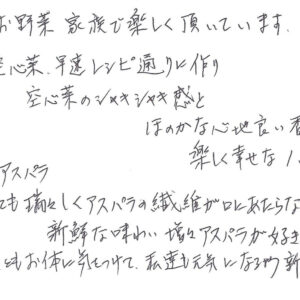 お野菜 家族で楽しく頂いています.
空心菜、早速レシピ通りに作り
空心菜のシャキシャキ感と
ほのかな心地良い香
楽しく幸せな
アスパラ
ても瑞々しくアスパラの繊維が口にあたらな
新鮮な味わい 増々アスパラが好き
ともお体に気をつけて、私達も元気になるお新